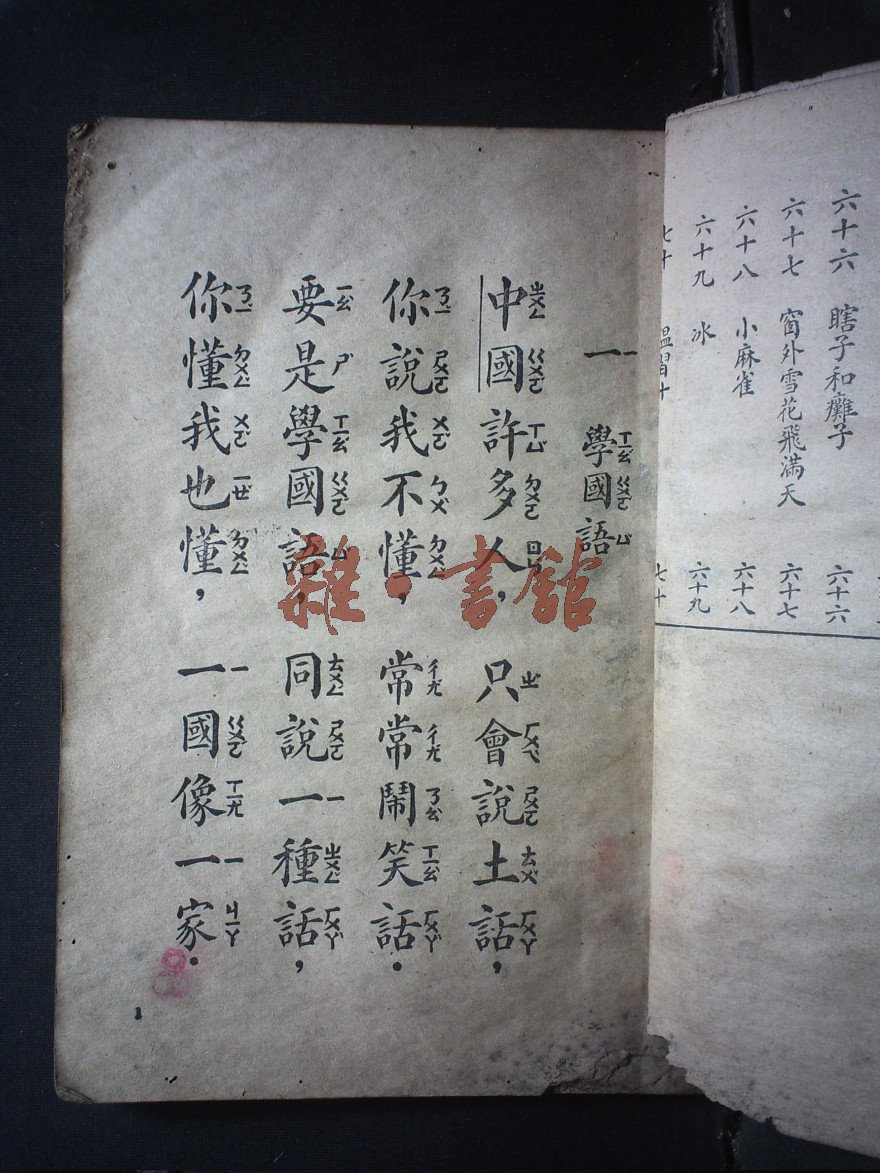 六十六 瞎子和癱子 六十六
六十七 窗外雪花飛滿天 六十七
六十八 小麻雀 六十八
六十九 冰 六十九
七十 溫習十 七十
一 學國語
中國許多人，只會說土話，
你說我不懂，常常鬧笑話．
要是學國語，同說一種話，
你懂我也懂，一國像一家．
1
雜·書館